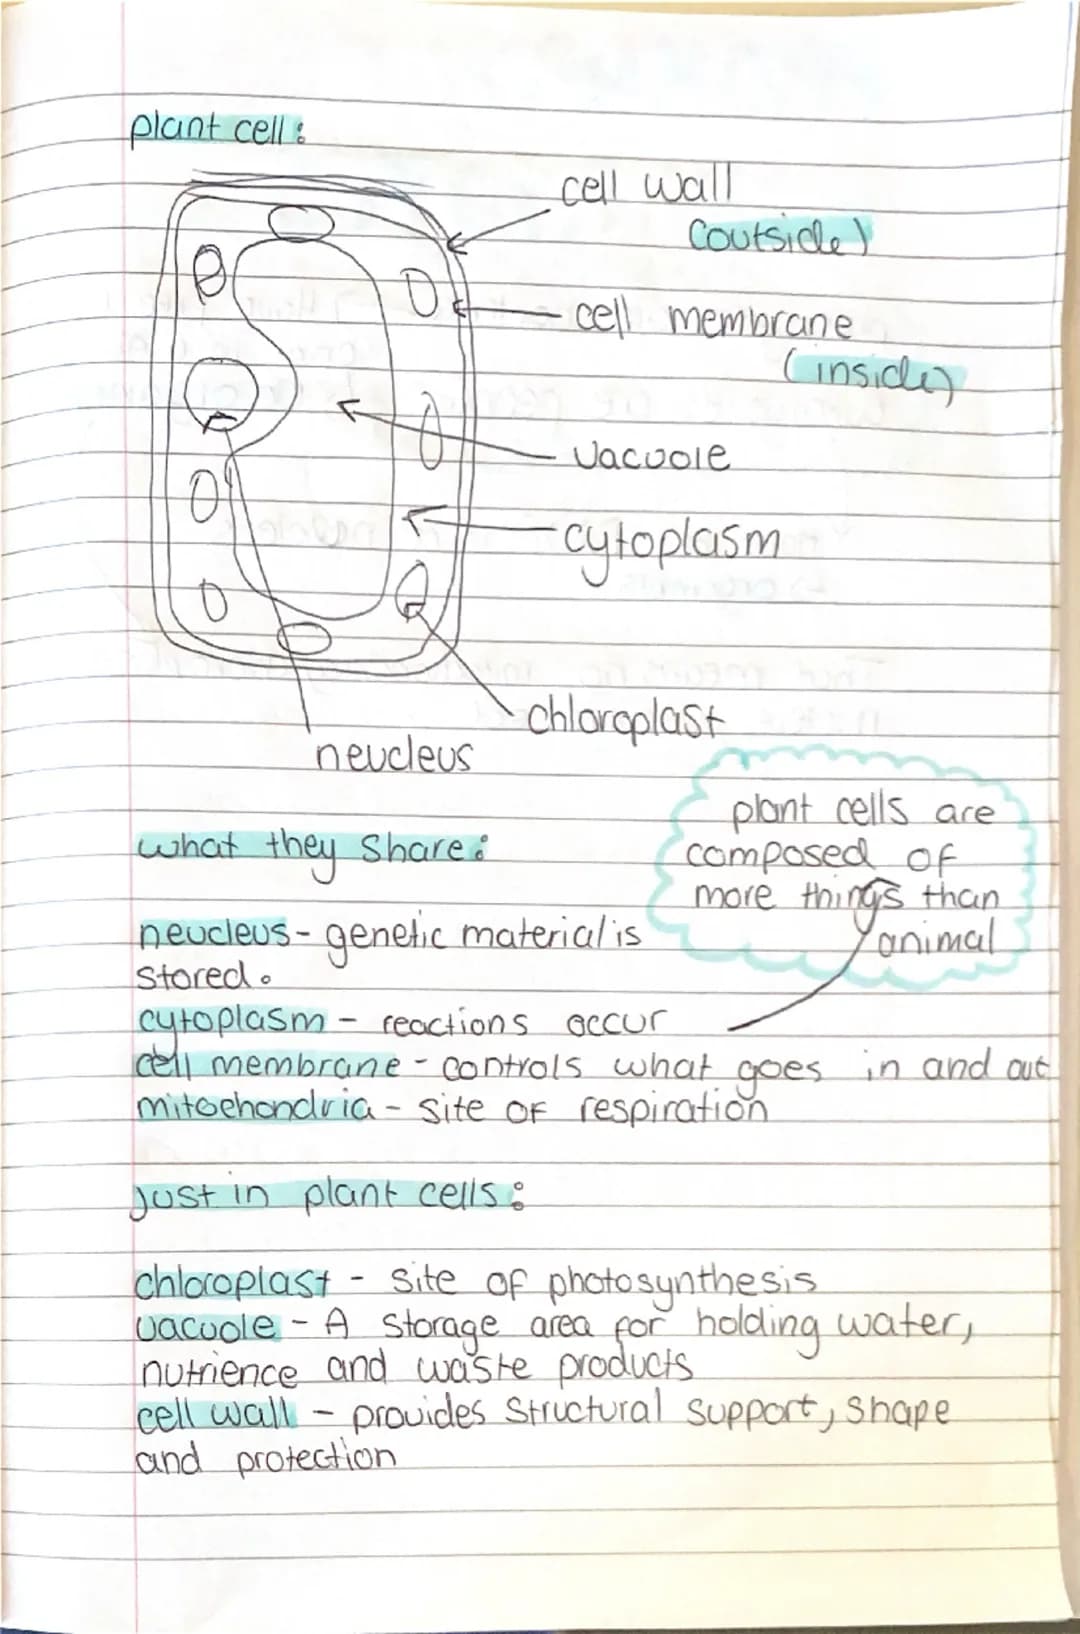 plant cell:
cell wall
(outside)
cell membrane
(inside)
vacuole
cytoplasm
chloroplast
neucleus
plant cells are
composed of
more things than
animal
what they share:
neucleus - genetic material is
stored.
cytoplasm - reactions occur
cell membrane - controls what goes in and out
mitochondria - site of respiration
Just in plant cells:
chloroplast - site of photosynthesis
vacuole - A storage area for holding water,
nutrience and waste products
cell wall - provides structural support, shape
and protection